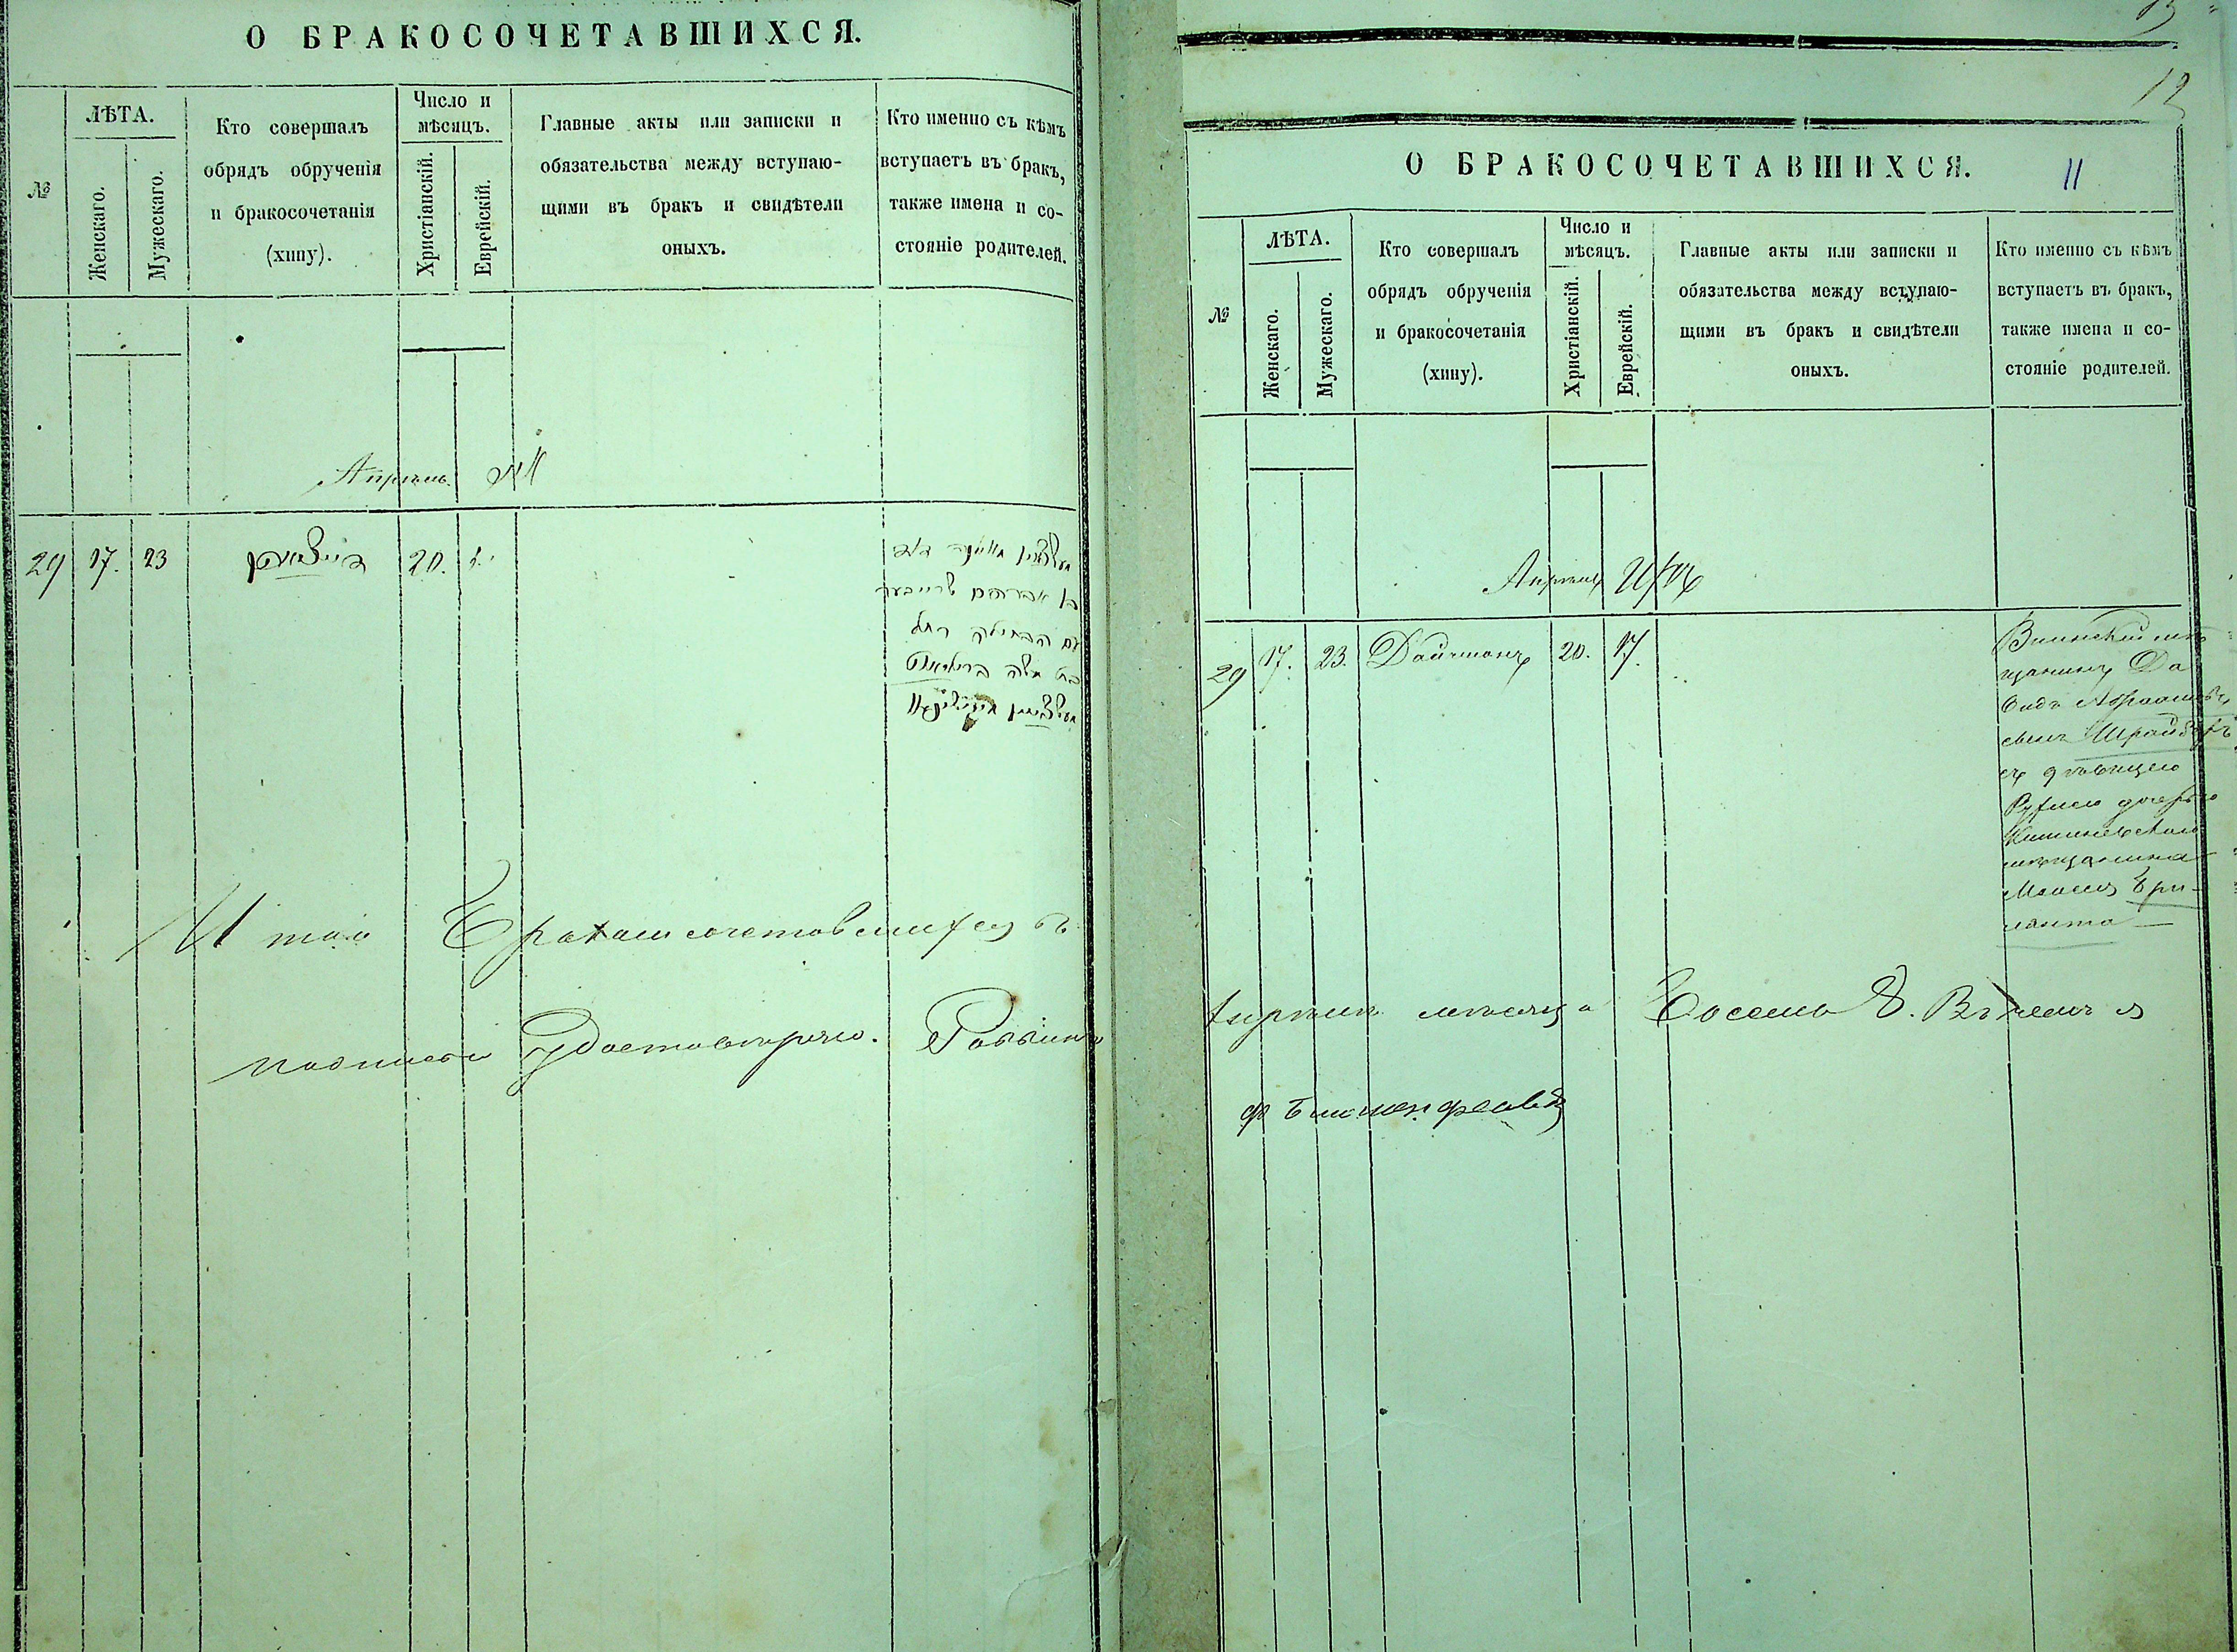 О БРАКОСОЧЕТАВШИХСЯ.
№
ЛѢТА.
Женскаго.
Мужескаго.
Кто совершалъ
обрядъ обрученія
и бракосочетанія
(хипу).
Число и
мѣсяцъ.
Христіанскій.
Еврейскій.
Главные акты или записки и
обязательства между вступаю-
щими въ бракъ и свидѣтели
оныхъ.
Кто именно съ кѣмъ
вступаетъ въ бракъ,
также имена и со-
стояніе родителей.
Апрѣль
29 17. 23 20.
דוד
בן אברהם שרייבער
עם הבתולה רחל
בת משה בריליאנט
Итого бракомсочетовшихся въ
подписью удостовѣряю. Раввинъ
12
О БРАКОСОЧЕТАВШИХСЯ.
11
№
ЛѢТА.
Женскаго.
Мужескаго.
Кто совершалъ
обрядъ обрученія
и бракосочетанія
(хипу).
Число и
мѣсяцъ.
Христіанскій.
Еврейскій.
Главные акты или записки и
обязательства между вступаю-
щими въ бракъ и свидѣтели
оныхъ.
Кто именно съ кѣмъ
вступаетъ въ бракъ,
также имена и со-
стояніе родителей.
Апрѣль Иръ
29 17. 23. Дайчманъ 20. 17.
мѣ
щанинъ Да
видъ Абрамовъ
сынъ Шрайберъ
съ дѣвицею
Рухлею дочерью
Кишиневскаго
мѣщанина
Моисея Бри-
лянта
Апрѣлѣ мѣсяца Восемь 8. Въ чемъ и